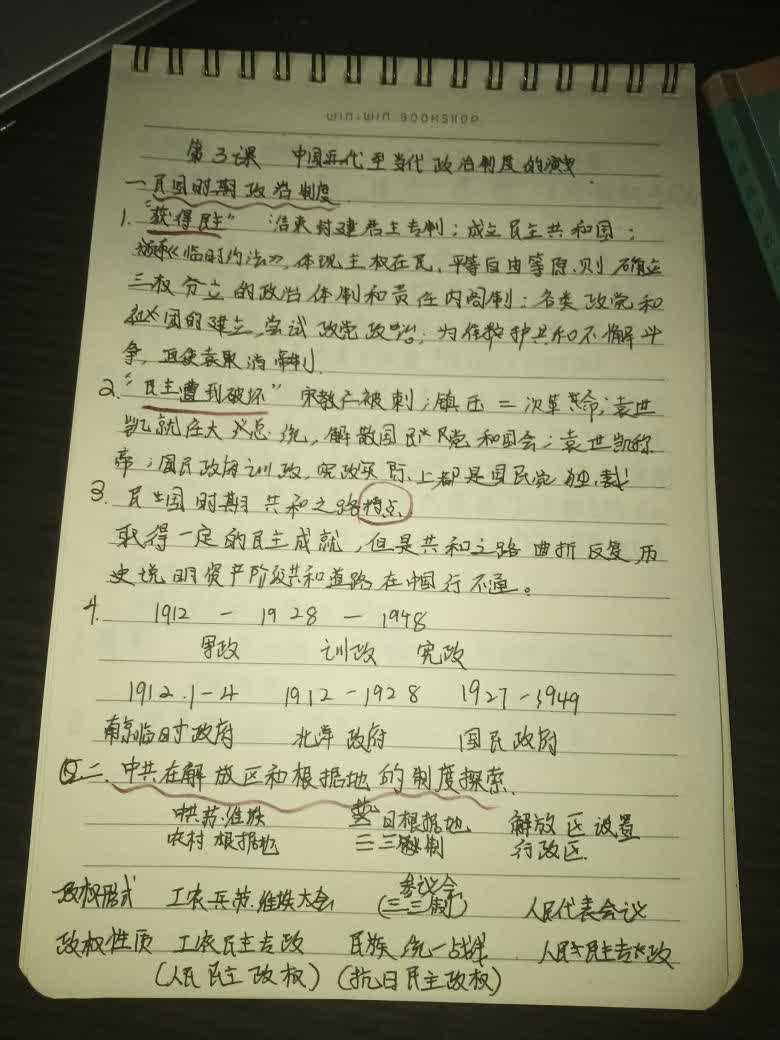 WIN:WIN BOOKSHOP
第3课 中国近代至当代政治制度的演变
一 民国时期政治制度
1. "获得民主" 结束封建君主专制；成立民主共和国；
颁《临时约法》，体现主权在民，平等自由等原则，确立
三权分立的政治体制和责任内阁制；各类政党和
社团的建立，尝试政党政治；为维护共和不懈斗
争，迫使袁取消帝制
2. "民主遭到破坏" 宋教仁被刺；镇压二次革命；袁世
凯就任大总统，解散国民党和国会；袁世凯称
帝；国民政府训政，宪政实际上都是国民党独裁
3. 民国时期共和之路特点
取得一定的民主成就，但是共和之路曲折反复，历
史说明资产阶级共和道路在中国行不通。
4. 1912 - 1928 - 1948
军政 训政 宪政
1912.1-4 1912-1928 1927-1949
南京临时政府 北洋政府 国民政府
二. 中共在解放区和根据地的制度探索.
日根据地 解放区设置
农村根据地 三三制 行政区.
参议会
政权形式 工农兵苏维埃大会 (三三制) 人民代表会议
政权性质 工农民主专政 民族统一战线 人民民主专政
(人民民主政权) (抗日民主政权)